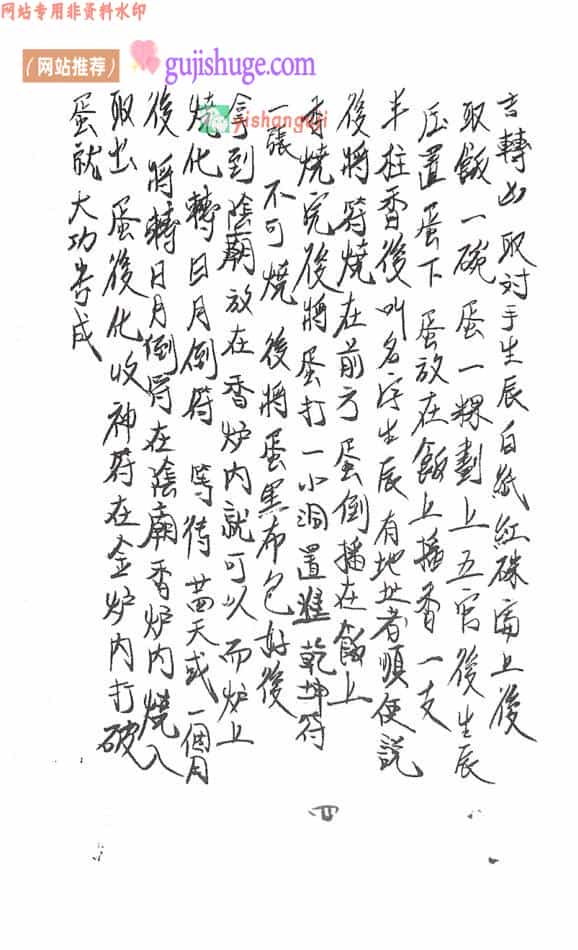 网站专用非资料水印
（网站推荐）
gujishuge.com
yishanguji
吉轉凶 取対手生辰白紙紅硃寫上後
取飯一碗蛋一粿劃上五官後生辰
压置蛋下 蛋放在飯上播香一支
半柱香後叫名字生辰有地址者順便説
後將符燒在前方蛋倒播在飯上
香燒完後將蛋打一小洞置進乾坤符
一張 不可燒 後將蛋黑布包好後
拿到陰廟放在香炉内就可以而炉上
燒化轉日月倒符 等待 天或一個月
後 將轉日月倒符在陰廟香炉内燒入
取出 蛋後化收神符在金炉内打破
蛋就大功告成
四